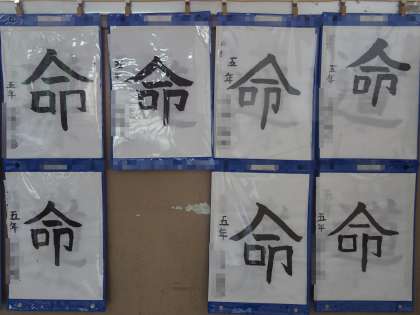 命
五年
命
五年
命
五年
命
五年
命
五年
命
五年
命
五年